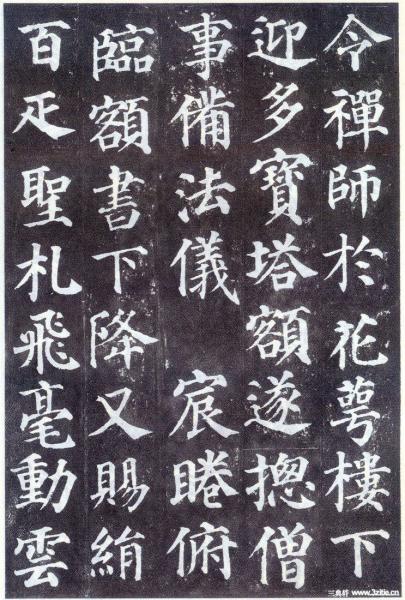 令禪師於花萼樓下
迎多寶塔額遂摠僧
事備法儀 宸睠俯
臨額書下降又賜絹
百疋聖札飛毫動雲
三典轩 www.3zitie.cn